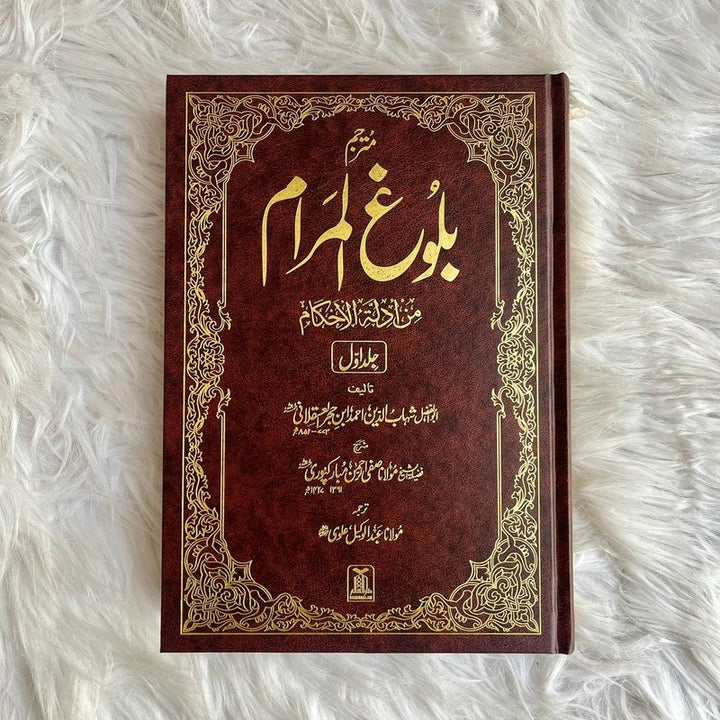 مُترجم
بلُوغُ المَرام
مِن أدلة الأحكام
جلد اوّل
تالیف
ابوالفضل شہاب الدین احمد ابن حجر العسقلانی
۷۷۳ - ۸۵۲ھ
شرح
فضیلۃ الشیخ مولانا صفی الرحمن مبارکپوری
ترجمہ
مولانا عبدالوکیل علوی
دارالسلام